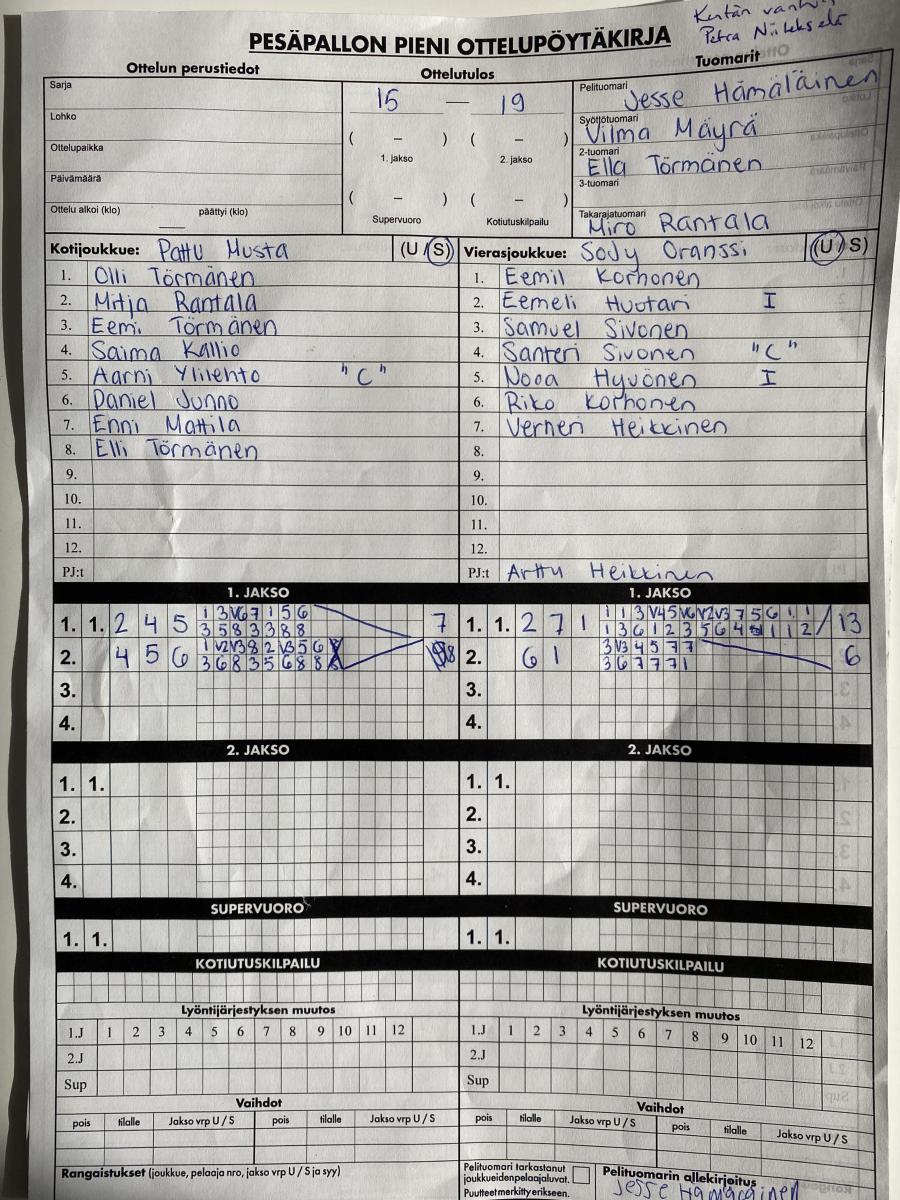 Kentän vanhin
Petra Niitekselä
PESÄPALLON PIENI OTTELUPÖYTÄKIRJA
Ottelun perustiedot Ottelutulos Tuomarit
Sarja
Lohko
Ottelupaikka
Päivämäärä
Ottelu alkoi (klo) päättyi (klo)
15 — 19
( – ) ( – )
1. jakso 2. jakso
( – ) ( – )
Supervuoro Kotiutuskilpailu
Pelituomari Jesse Hämäläinen
Syöttötuomari Vilma Mäyrä
2-tuomari Ella Törmänen
3-tuomari
Takarajatuomari Miro Rantala
Kotijoukkue: Pattu Musta (U / S)
1. Olli Törmänen
2. Mitja Rantala
3. Eemi Törmänen
4. Saima Kallio
5. Aarni Ylilehto "C"
6. Daniel Junno
7. Enni Mattila
8. Elli Törmänen
9.
10.
11.
12.
PJ:t
Vierasjoukkue: Sody Oranssi (U / S)
1. Eemil Korhonen
2. Eemeli Huotari I
3. Samuel Sivonen
4. Santeri Sivonen "C"
5. Nooa Hyvönen I
6. Riko Korhonen
7. Verneri Heikkinen
8.
9.
10.
11.
12.
PJ:t Arttu Heikkinen
1. JAKSO 1. JAKSO
1. 1. 2 4 5 1 3 V6 7 1 5 6 7
3 5 8 3 3 8 8
2. 4 5 6 1 V2 V3 8 2 V3 5 6 8
3 6 8 3 5 6 8 8
3.
4.
1. 1. 2 7 1 1 1 3 V4 5 V6 V2 V3 7 5 6 1 1 13
1 3 6 1 2 3 5 6 4 1 1 2
2. 6 1 3 V3 4 5 7 7 6
3 6 7 7 7 1
3.
4.
2. JAKSO 2. JAKSO
1. 1. 1. 1.
2. 2.
3. 3.
4. 4.
SUPERVUORO SUPERVUORO
1. 1. 1. 1.
KOTIUTUSKILPAILU KOTIUTUSKILPAILU
Lyöntijärjestyksen muutos Lyöntijärjestyksen muutos
1.J 1 2 3 4 5 6 7 8 9 10 11 12 1.J 1 2 3 4 5 6 7 8 9 10 11 12
2.J 2.J
Sup Sup
Vaihdot Vaihdot
pois tilalle Jakso vrp U / S pois tilalle Jakso vrp U / S pois tilalle Jakso vrp U / S pois tilalle Jakso vrp U / S
Rangaistukset (joukkue, pelaaja nro, jakso vrp U / S ja syy)
Pelituomari tarkastanut
joukkueiden pelaajaluvat.
Puutteet merkitty erikseen.
Pelituomarin allekirjoitus
Jesse Hämäläinen